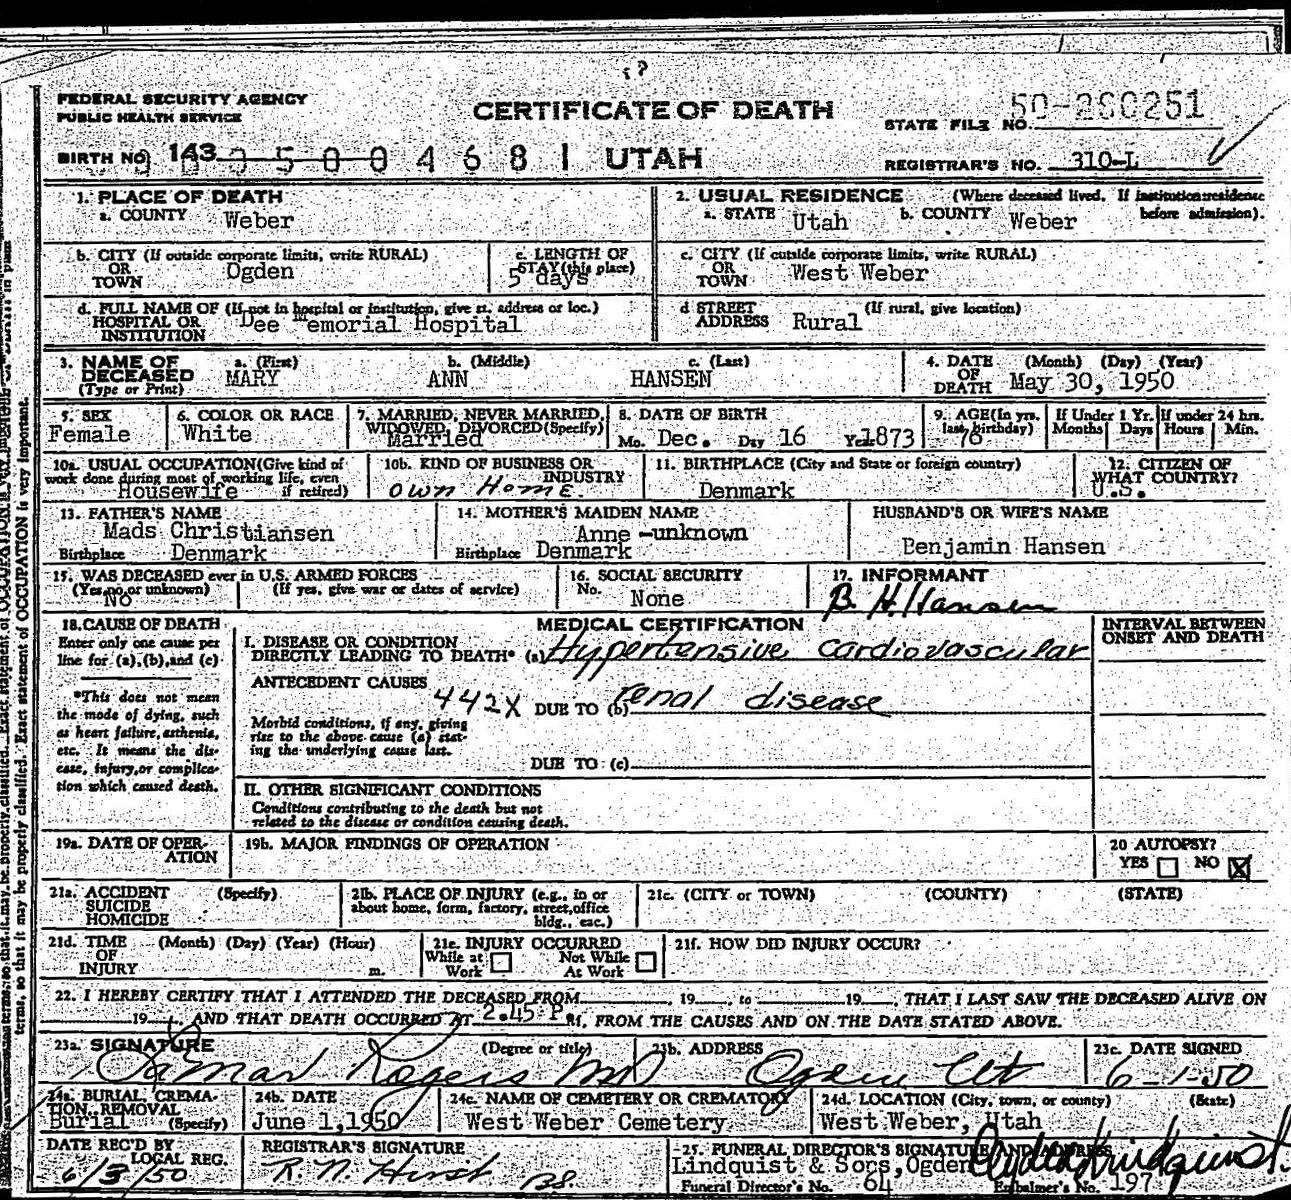 FEDERAL SECURITY AGENCY
PUBLIC HEALTH SERVICE
CERTIFICATE OF DEATH
STATE FILE NO. 50-280251
BIRTH NO. 143 5004681 UTAH
REGISTRAR'S NO. 310-L
1. PLACE OF DEATH
a. COUNTY Weber
2. USUAL RESIDENCE (Where deceased lived. If institution: residence before admission).
a. STATE Utah b. COUNTY Weber
b. CITY (If outside corporate limits, write RURAL)
OR TOWN Ogden
c. LENGTH OF STAY (this place)
5 days
c. CITY (If outside corporate limits, write RURAL)
OR TOWN West Weber
d. FULL NAME OF (If not in hospital or institution, give st. address or loc.)
HOSPITAL OR INSTITUTION Dee Memorial Hospital
d STREET ADDRESS (If rural, give location)
Rural
3. NAME OF DECEASED (Type or Print)
a. (First) b. (Middle) c. (Last)
MARY ANN HANSEN
4. DATE OF DEATH (Month) (Day) (Year)
May 30, 1950
5. SEX
Female
6. COLOR OR RACE
White
7. MARRIED, NEVER MARRIED, WIDOWED, DIVORCED (Specify)
Married
8. DATE OF BIRTH
Mo. Dec. Day 16 Yr. 1873
9. AGE (In yrs. last birthday)
76
If Under 1 Yr. Months Days
If under 24 hrs. Hours Min.
10a. USUAL OCCUPATION (Give kind of work done during most of working life, even if retired)
Housewife
10b. KIND OF BUSINESS OR INDUSTRY
Own Home
11. BIRTHPLACE (City and State or foreign country)
Denmark
12. CITIZEN OF WHAT COUNTRY?
U.S.
13. FATHER'S NAME
Mads Christiansen
Birthplace Denmark
14. MOTHER'S MAIDEN NAME
Anne -unknown
Birthplace Denmark
HUSBAND'S OR WIFE'S NAME
Benjamin Hansen
15. WAS DECEASED ever in U.S. ARMED FORCES
(Yes, no or unknown) (If yes, give war or dates of service)
No
16. SOCIAL SECURITY No.
None
17. INFORMANT
B. H. Hansen
18. CAUSE OF DEATH
Enter only one cause per line for (a), (b), and (c)
*This does not mean the mode of dying, such as heart failure, asthenia, etc. It means the disease, injury, or complication which caused death.
MEDICAL CERTIFICATION
INTERVAL BETWEEN ONSET AND DEATH
I. DISEASE OR CONDITION
DIRECTLY LEADING TO DEATH* (a) Hypertensive cardiovascular
ANTECEDENT CAUSES
442X DUE TO (b) renal disease
Morbid conditions, if any, giving rise to the above cause (a) stating the underlying cause last.
DUE TO (c)
II. OTHER SIGNIFICANT CONDITIONS
Conditions contributing to the death but not related to the disease or condition causing death.
19a. DATE OF OPERATION
19b. MAJOR FINDINGS OF OPERATION
20 AUTOPSY?
YES NO X
21a. ACCIDENT (Specify)
SUICIDE
HOMICIDE
21b. PLACE OF INJURY (e.g., in or about home, form, factory, street, office bldg., eac.)
21c. (CITY or TOWN) (COUNTY) (STATE)
21d. TIME OF INJURY (Month) (Day) (Year) (Hour) m.
21e. INJURY OCCURRED
While at Work Not While At Work
21f. HOW DID INJURY OCCUR?
22. I HEREBY CERTIFY THAT I ATTENDED THE DECEASED FROM , 19 , to 19 , THAT I LAST SAW THE DECEASED ALIVE ON
19 , AND THAT DEATH OCCURRED AT 2.45 P M, FROM THE CAUSES AND ON THE DATE STATED ABOVE.
23a. SIGNATURE (Degree or title)
Rogers MD
23b. ADDRESS
Ogden Ut
23c. DATE SIGNED
6-1-50
24a. BURIAL, CREMATION, REMOVAL (Specify)
Burial
24b. DATE
June 1, 1950
24c. NAME OF CEMETERY OR CREMATORY
West Weber Cemetery
24d. LOCATION (City, town, or county) (State)
West Weber, Utah
DATE REC'D BY LOCAL REG.
6/3/50
REGISTRAR'S SIGNATURE
25. FUNERAL DIRECTOR'S SIGNATURE AND ADDRESS
Lindquist & Sons, Ogden
Funeral Director's No. 64 Embalmer's No. 197
terms, so that it may be properly classified. Exact statement of OCCUPATION is very important.